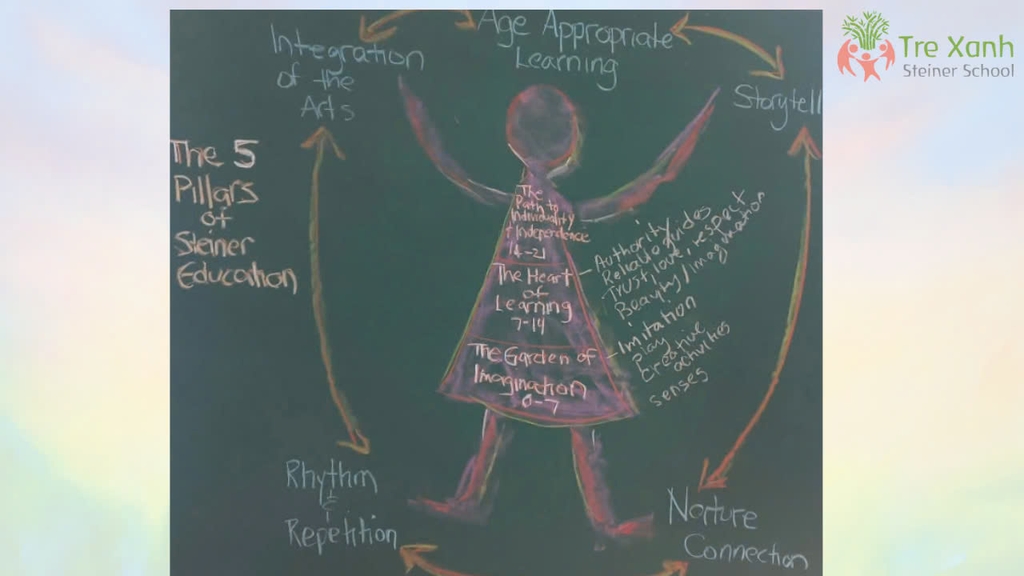 Age Appropriate
Learning
Integration
of the
Arts
Storytell
The 5
Pillars
of
Steiner
Education
The
Path to
Individuality
+ Independence
14-21
The Heart
of
Learning
7-14
The Garden of
Imagination
0-7
Authority
Reliable guides
Trust, love & respect
Beauty/Imagination
Imitation
Play
Creative
activities
senses
Rhythm
&
Repetition
Nurture
Connection
Tre Xanh
Steiner School